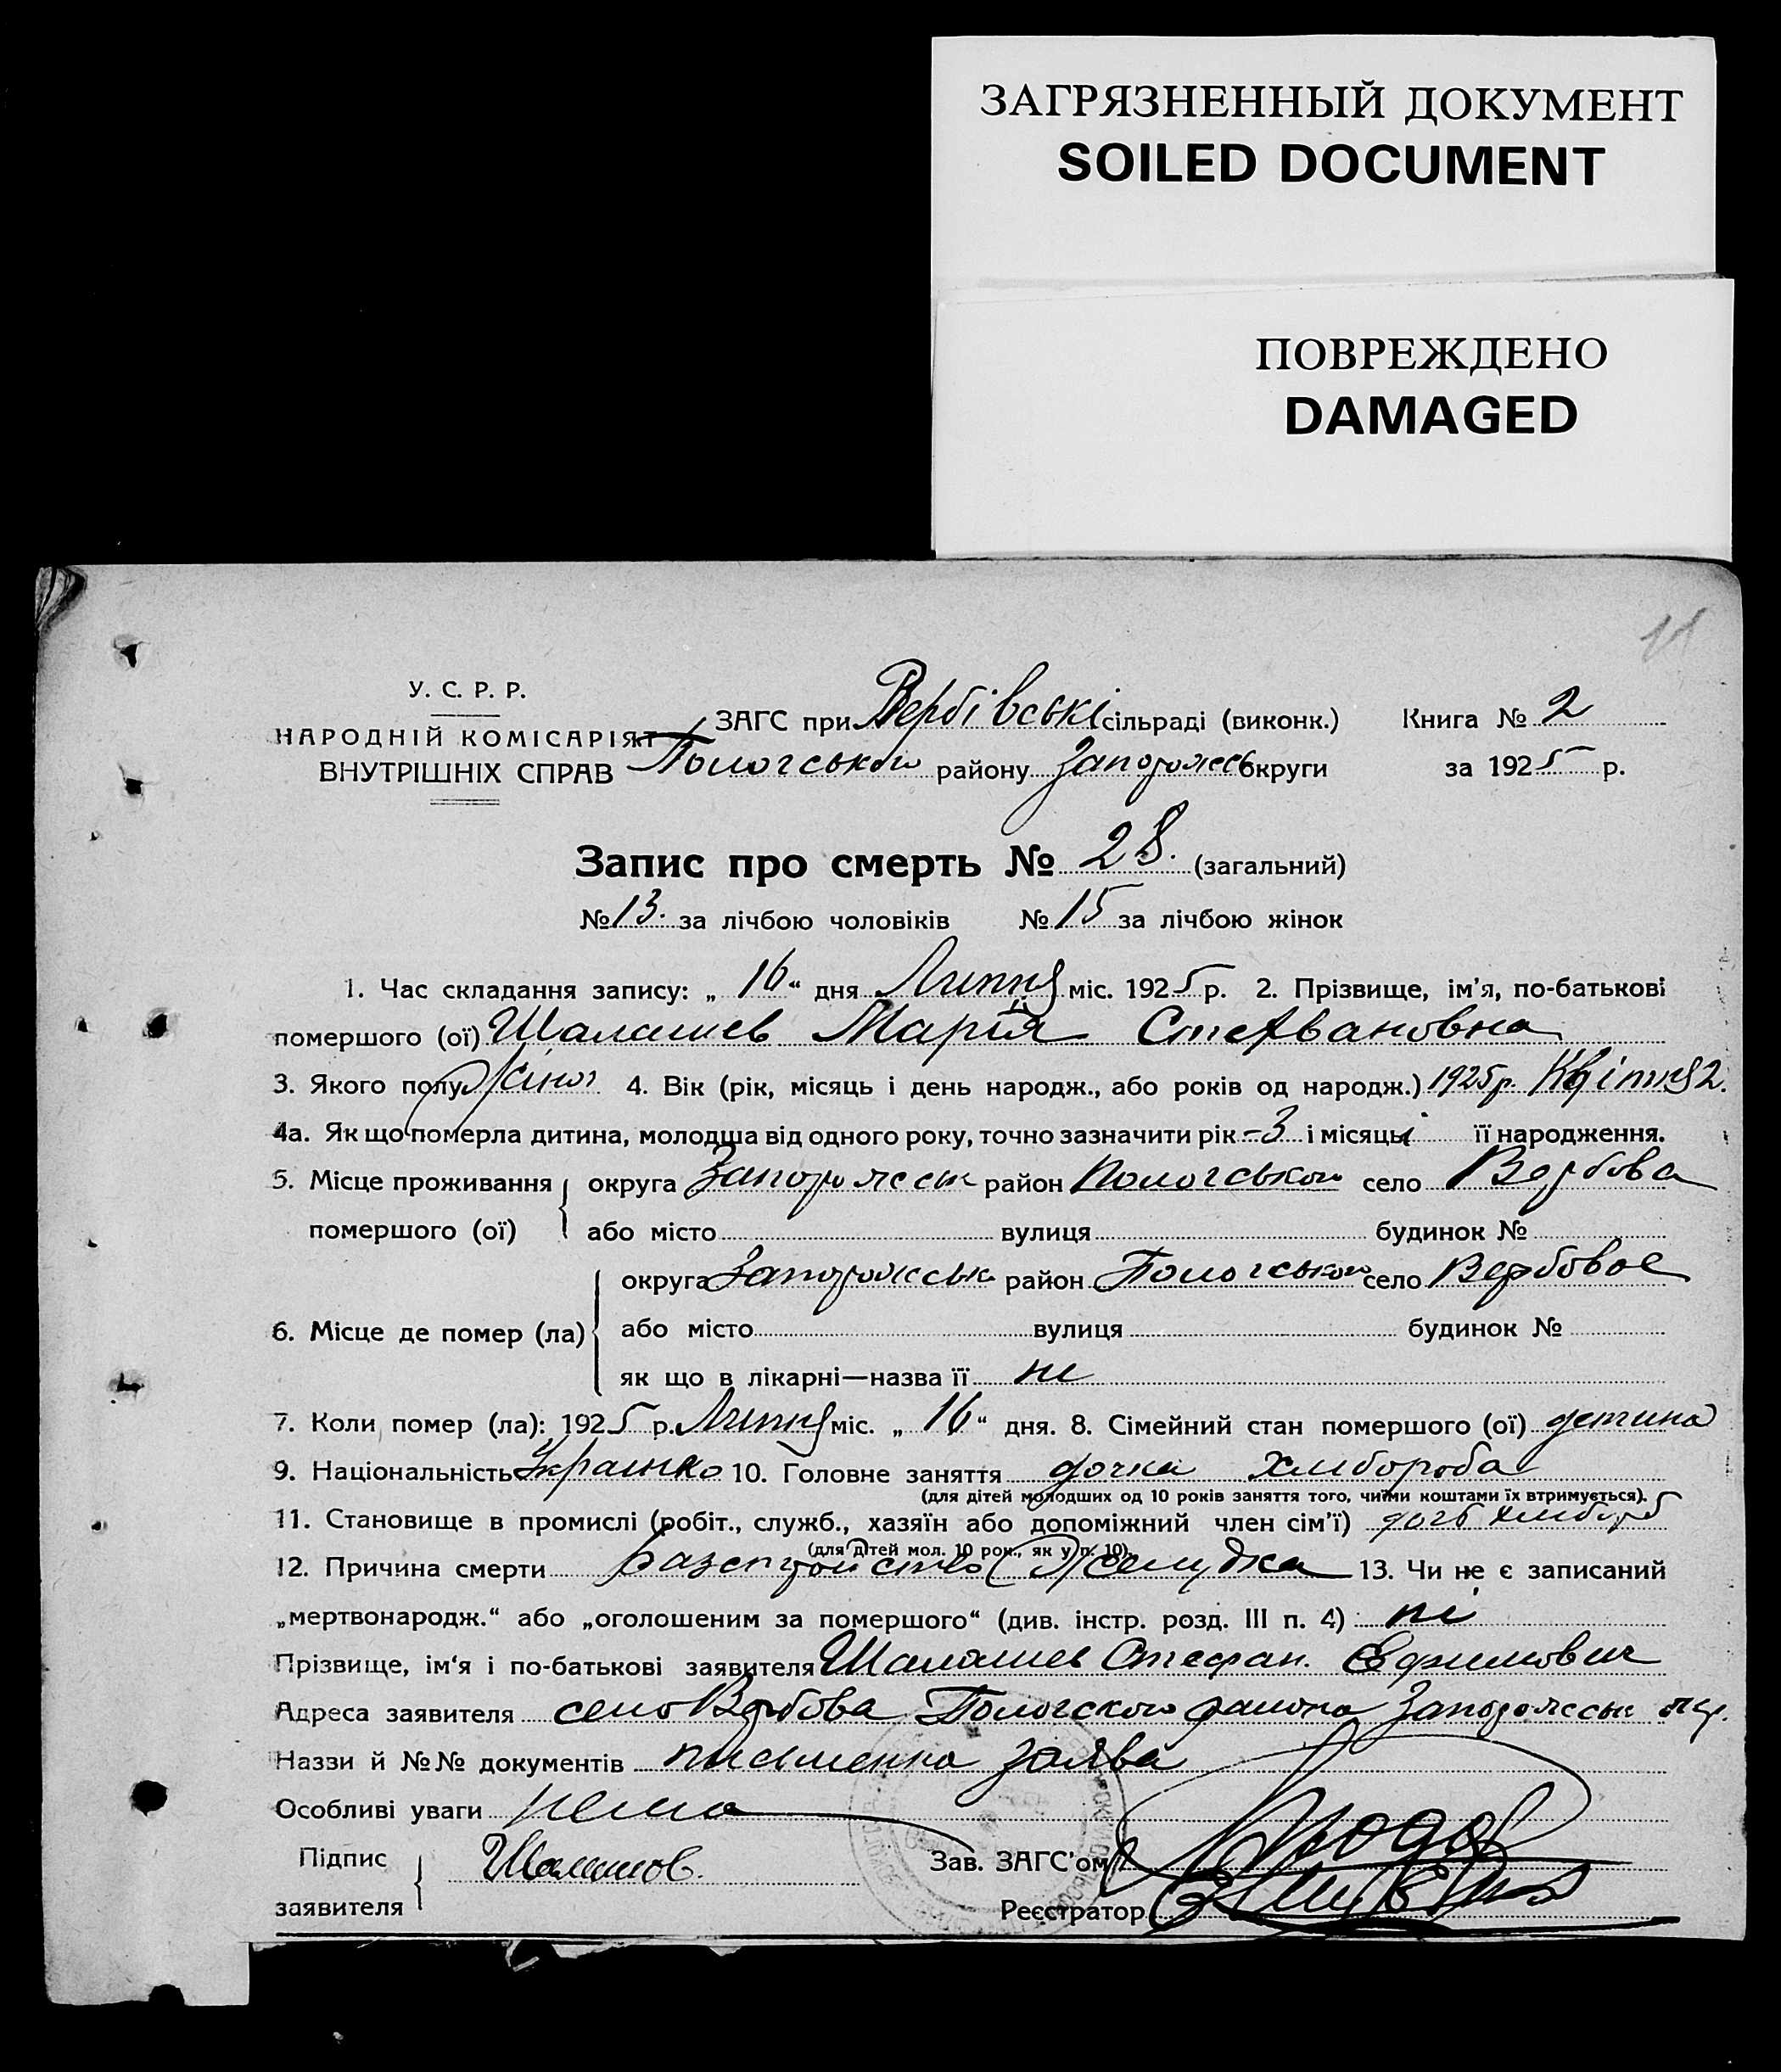 ЗАГРЯЗНЕННЫЙ ДОКУМЕНТ
SOILED DOCUMENT
ПОВРЕЖДЕНО
DAMAGED
11
У. С. Р. Р.
НАРОДНІЙ КОМІСАРІЯТ
ВНУТРІШНІХ СПРАВ
ЗАГС при Вербівські сільраді (виконк.) Книга № 2
Пологського району Запорожсь округи за 1925 р.
Запис про смерть № 28. (загальний)
№ 13. за лічбою чоловіків № 15 за лічбою жінок
1. Час складання запису: „ 16 “ дня Липня міс. 1925 р. 2. Прізвище, ім'я, по-батькові
помершого (ої) Марія
3. Якого полу Жіноч 4. Вік (рік, місяць і день народж., або років од народж.) 1925 р. Квітня 2.
4а. Як що померла дитина, молодша від одного року, точно зазначити рік - 3 і місяць її народження.
5. Місце проживання округа Запорожськ район Пологського село Вербова
помершого (ої) або місто вулиця будинок №
округа Запорожськ район Пологського село Вербовое
6. Місце де помер (ла) або місто вулиця будинок №
як що в лікарні—назва її ні
7. Коли помер (ла): 1925 р. Липня міс. „ 16 “ дня. 8. Сімейний стан помершого (ої) детина
9. Національність Украінка 10. Головне заняття дочка хлибороба
(для дітей молодших од 10 років заняття того, чиїми коштами їх втримується).
11. Становище в промислі (робіт., служб., хазяїн або допоміжний член сім'ї) дочь хлибороб
(для дітей мол. 10 рок., як у п. 10)
12. Причина смерти Желудка 13. Чи не є записаний
„мертвонародж.“ або „оголошеним за помершого“ (див. інстр. розд. III п. 4) ні
Прізвище, ім'я і по-батькові заявителя Стефан. Ефимович
Адреса заявителя село Вербова Пологского района Запорожськ окр.
Назви й №№ документів письменна заява
Особливі уваги нема
Підпис
заявителя
Зав. ЗАГС'ом
Реєстратор